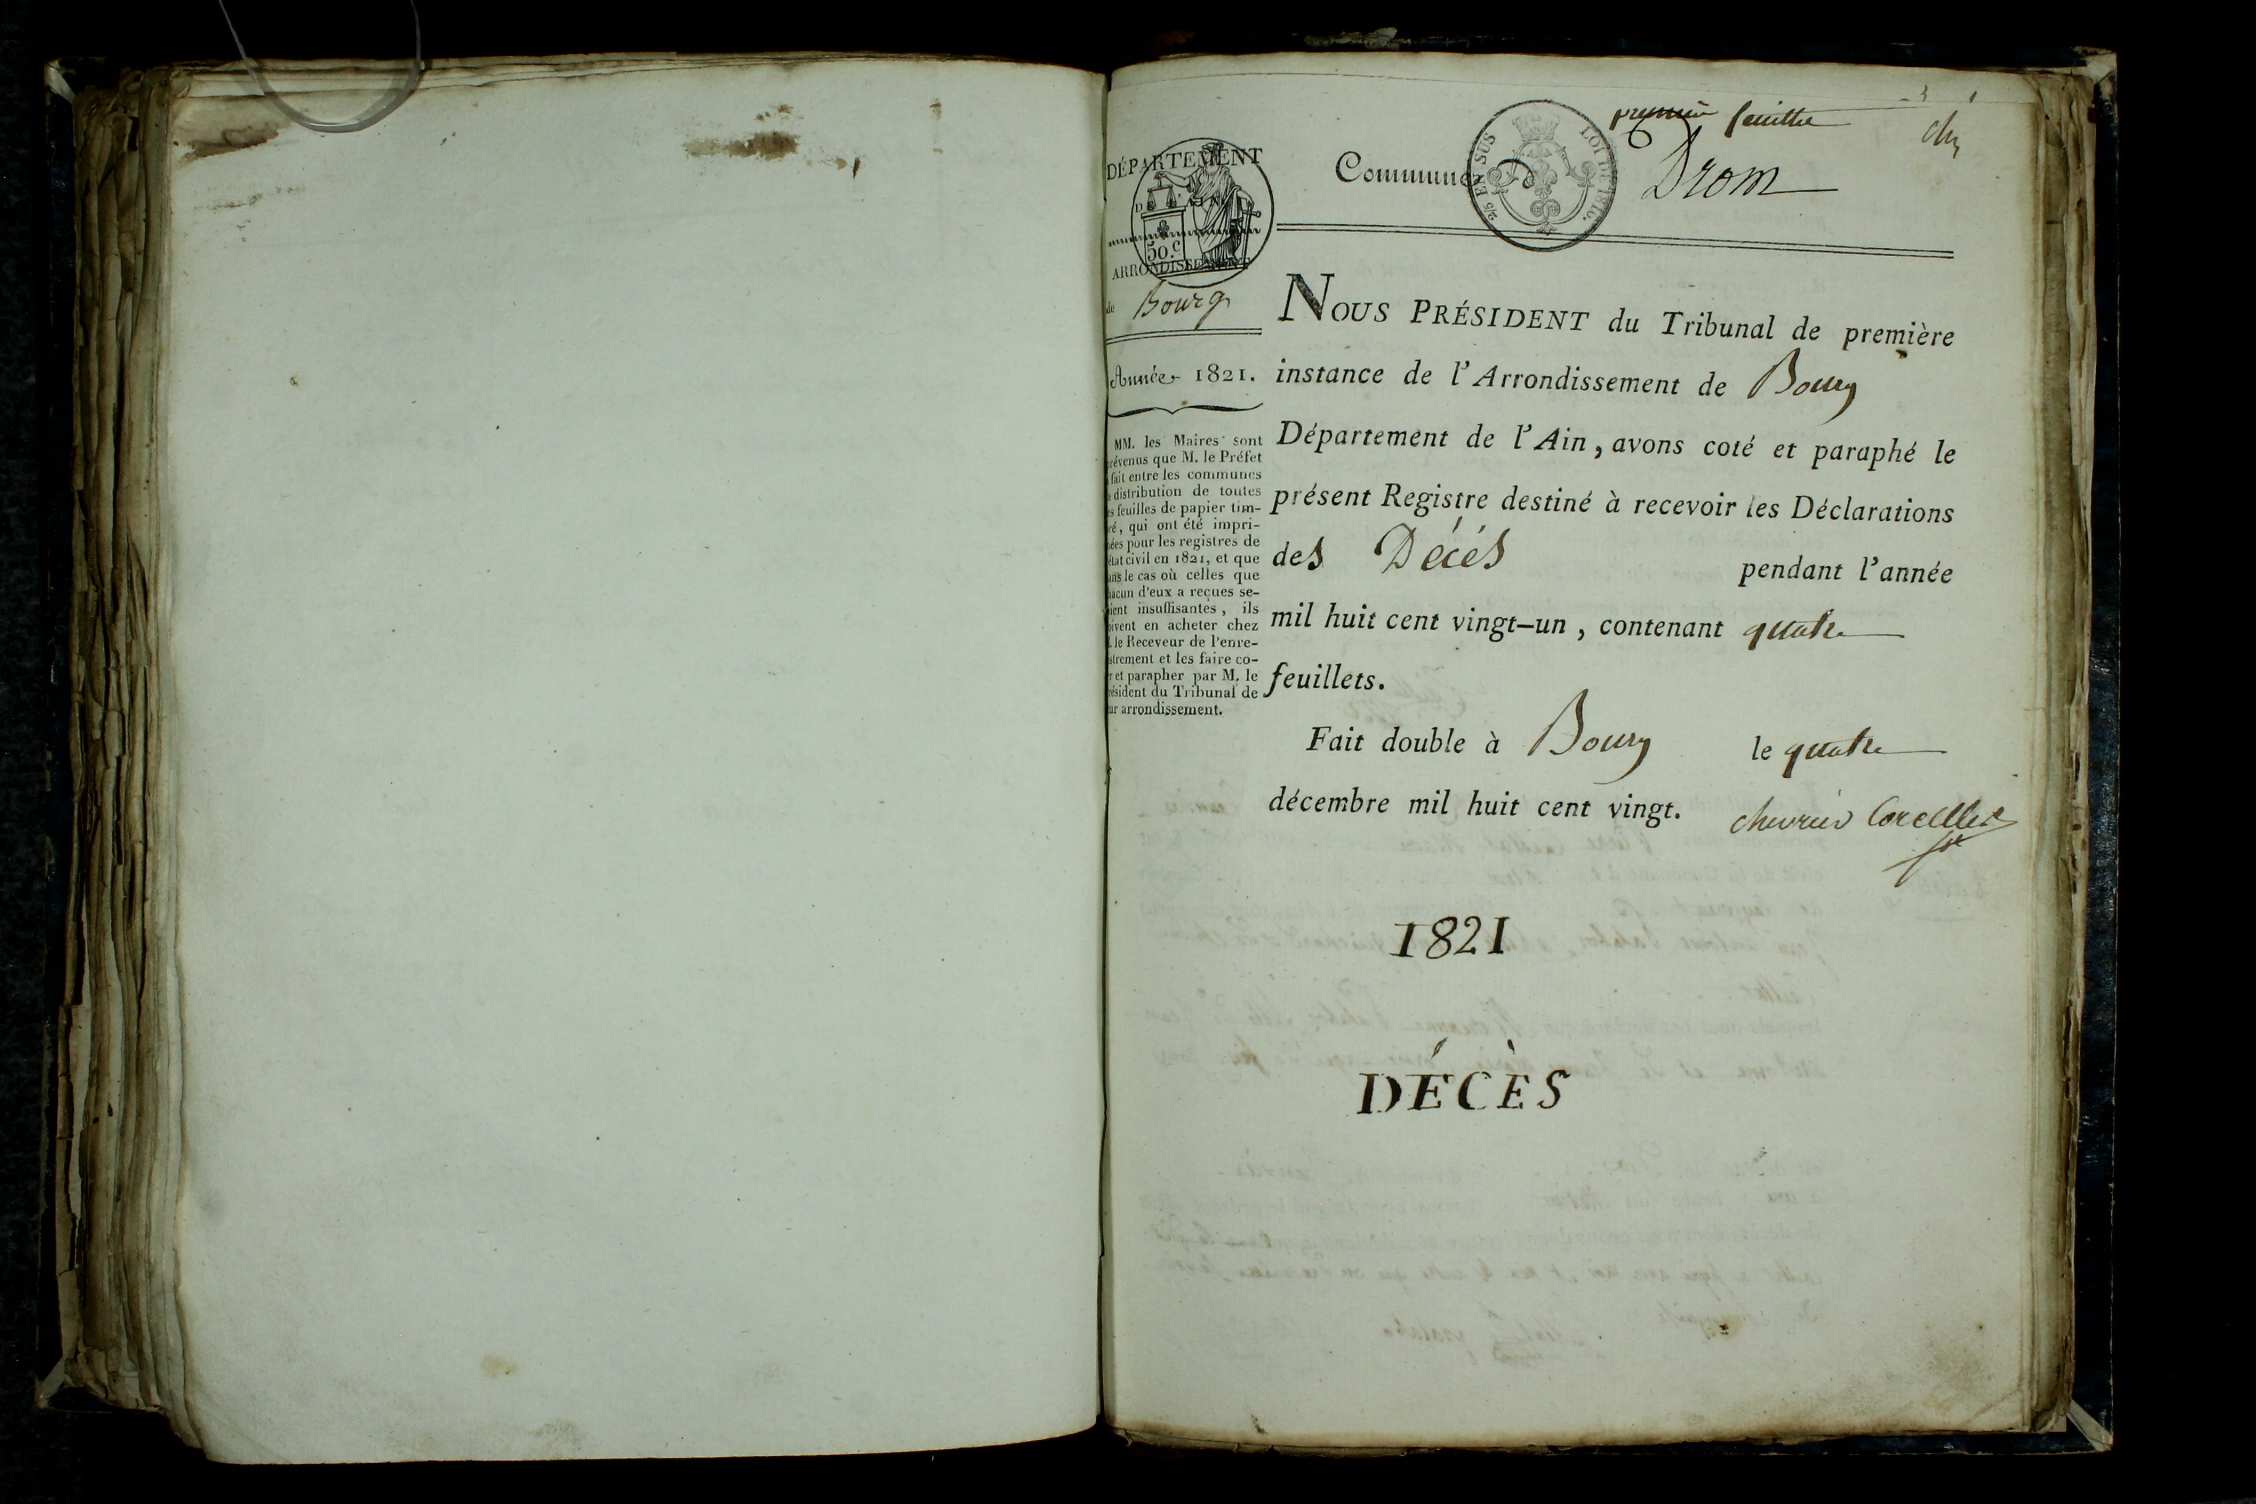 première feuille
chy
DÉPARTEMENT
DE L'AIN
50.c
ARRONDISSEMENT
de Bourg
Année 1821.
MM. les Maires sont
prévenus que M. le Préfet
a fait entre les communes
la distribution de toutes
les feuilles de papier tim-
bré, qui ont été impri-
mées pour les registres de
l'état civil en 1821, et que
dans le cas où celles que
chacun d'eux a reçues se-
roient insuffisantes, ils
doivent en acheter chez
M. le Receveur de l'enre-
gistrement et les faire co-
ter et parapher par M. le
Président du Tribunal de
leur arrondissement.
Commune de Drom
2/5 EN SUS LOI DE 1816.
NOUS PRÉSIDENT du Tribunal de première
instance de l'Arrondissement de Bourg
Département de l'Ain, avons coté et paraphé le
présent Registre destiné à recevoir les Déclarations
des Décés pendant l'année
mil huit cent vingt-un, contenant quatre
feuillets.
Fait double à Bourg le quatre
décembre mil huit cent vingt.
chevrier Corcelles
1821
DÉCÈS